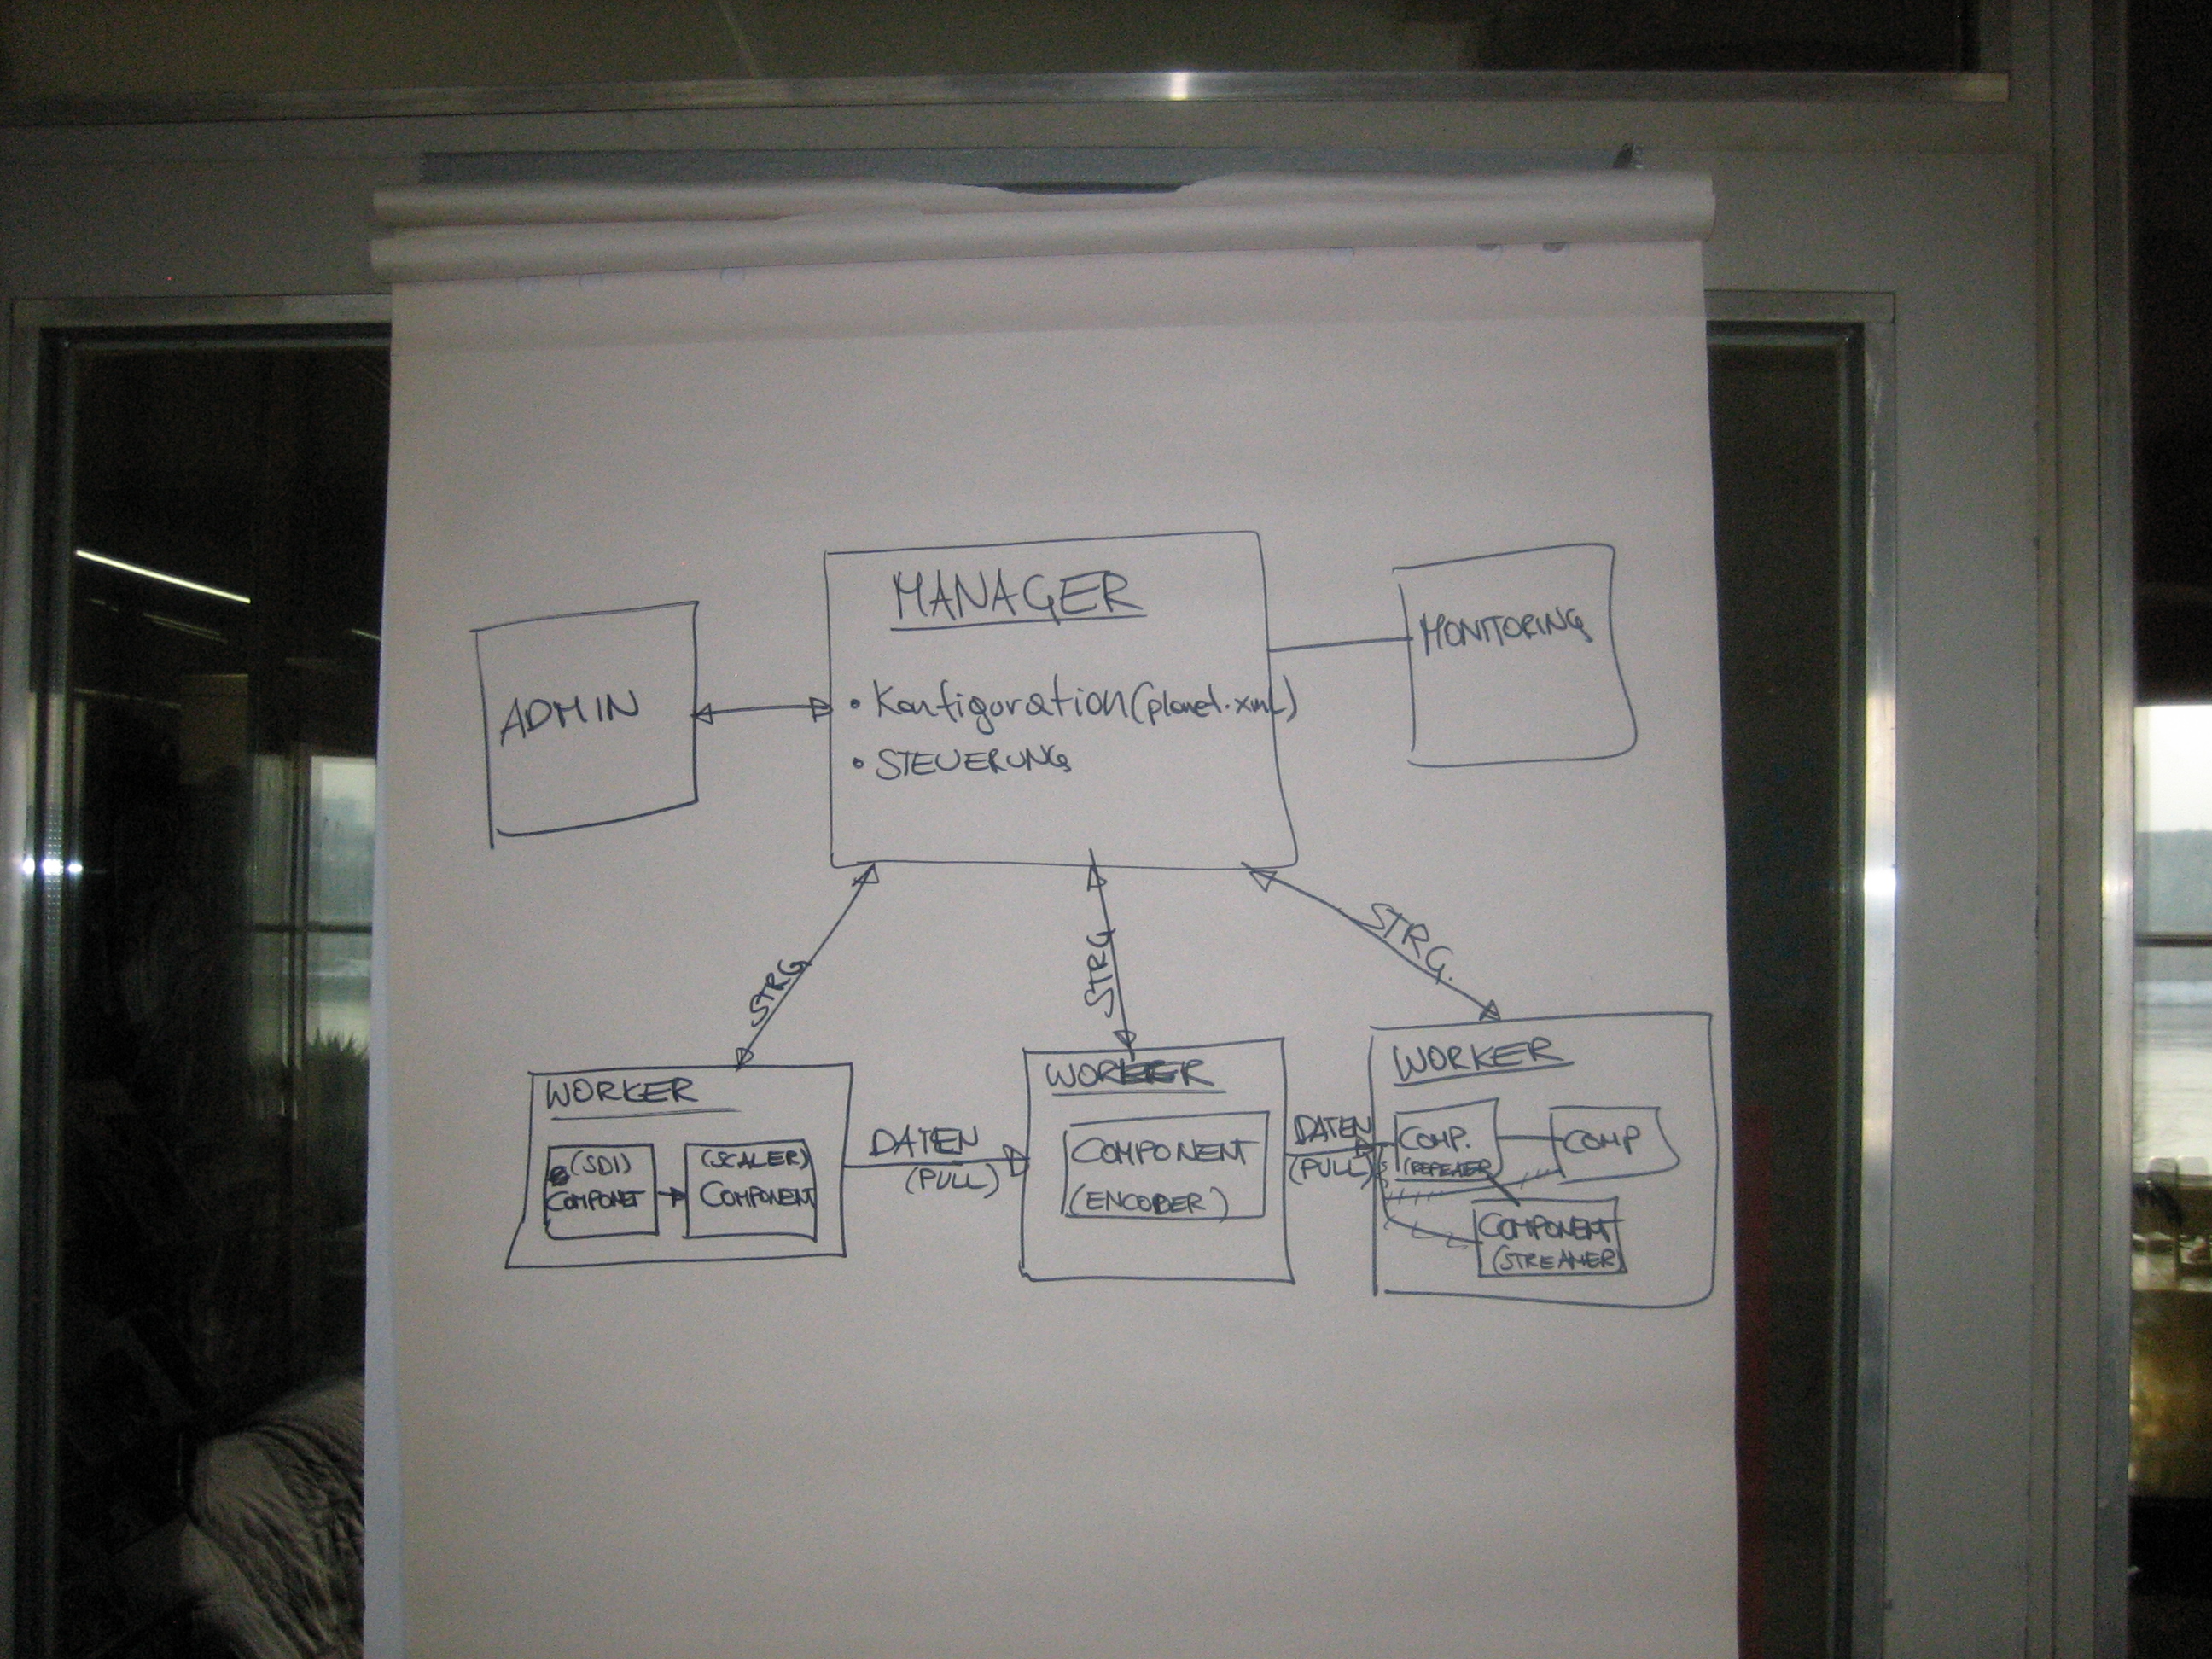 MANAGER
• Konfiguration (planet.xml)
• STEUERUNG
ADMIN
MONITORING
STRG
STRG
STRG.
WORKER
(SDI)
COMPONET
(SCALER)
COMPONENT
DATEN
(PULL)
WORKER
COMPONENT
(ENCODER)
DATEN
(PULL)
WORKER
COMP.
(REPEATER
COMP
COMPONENT
(STREAMER)